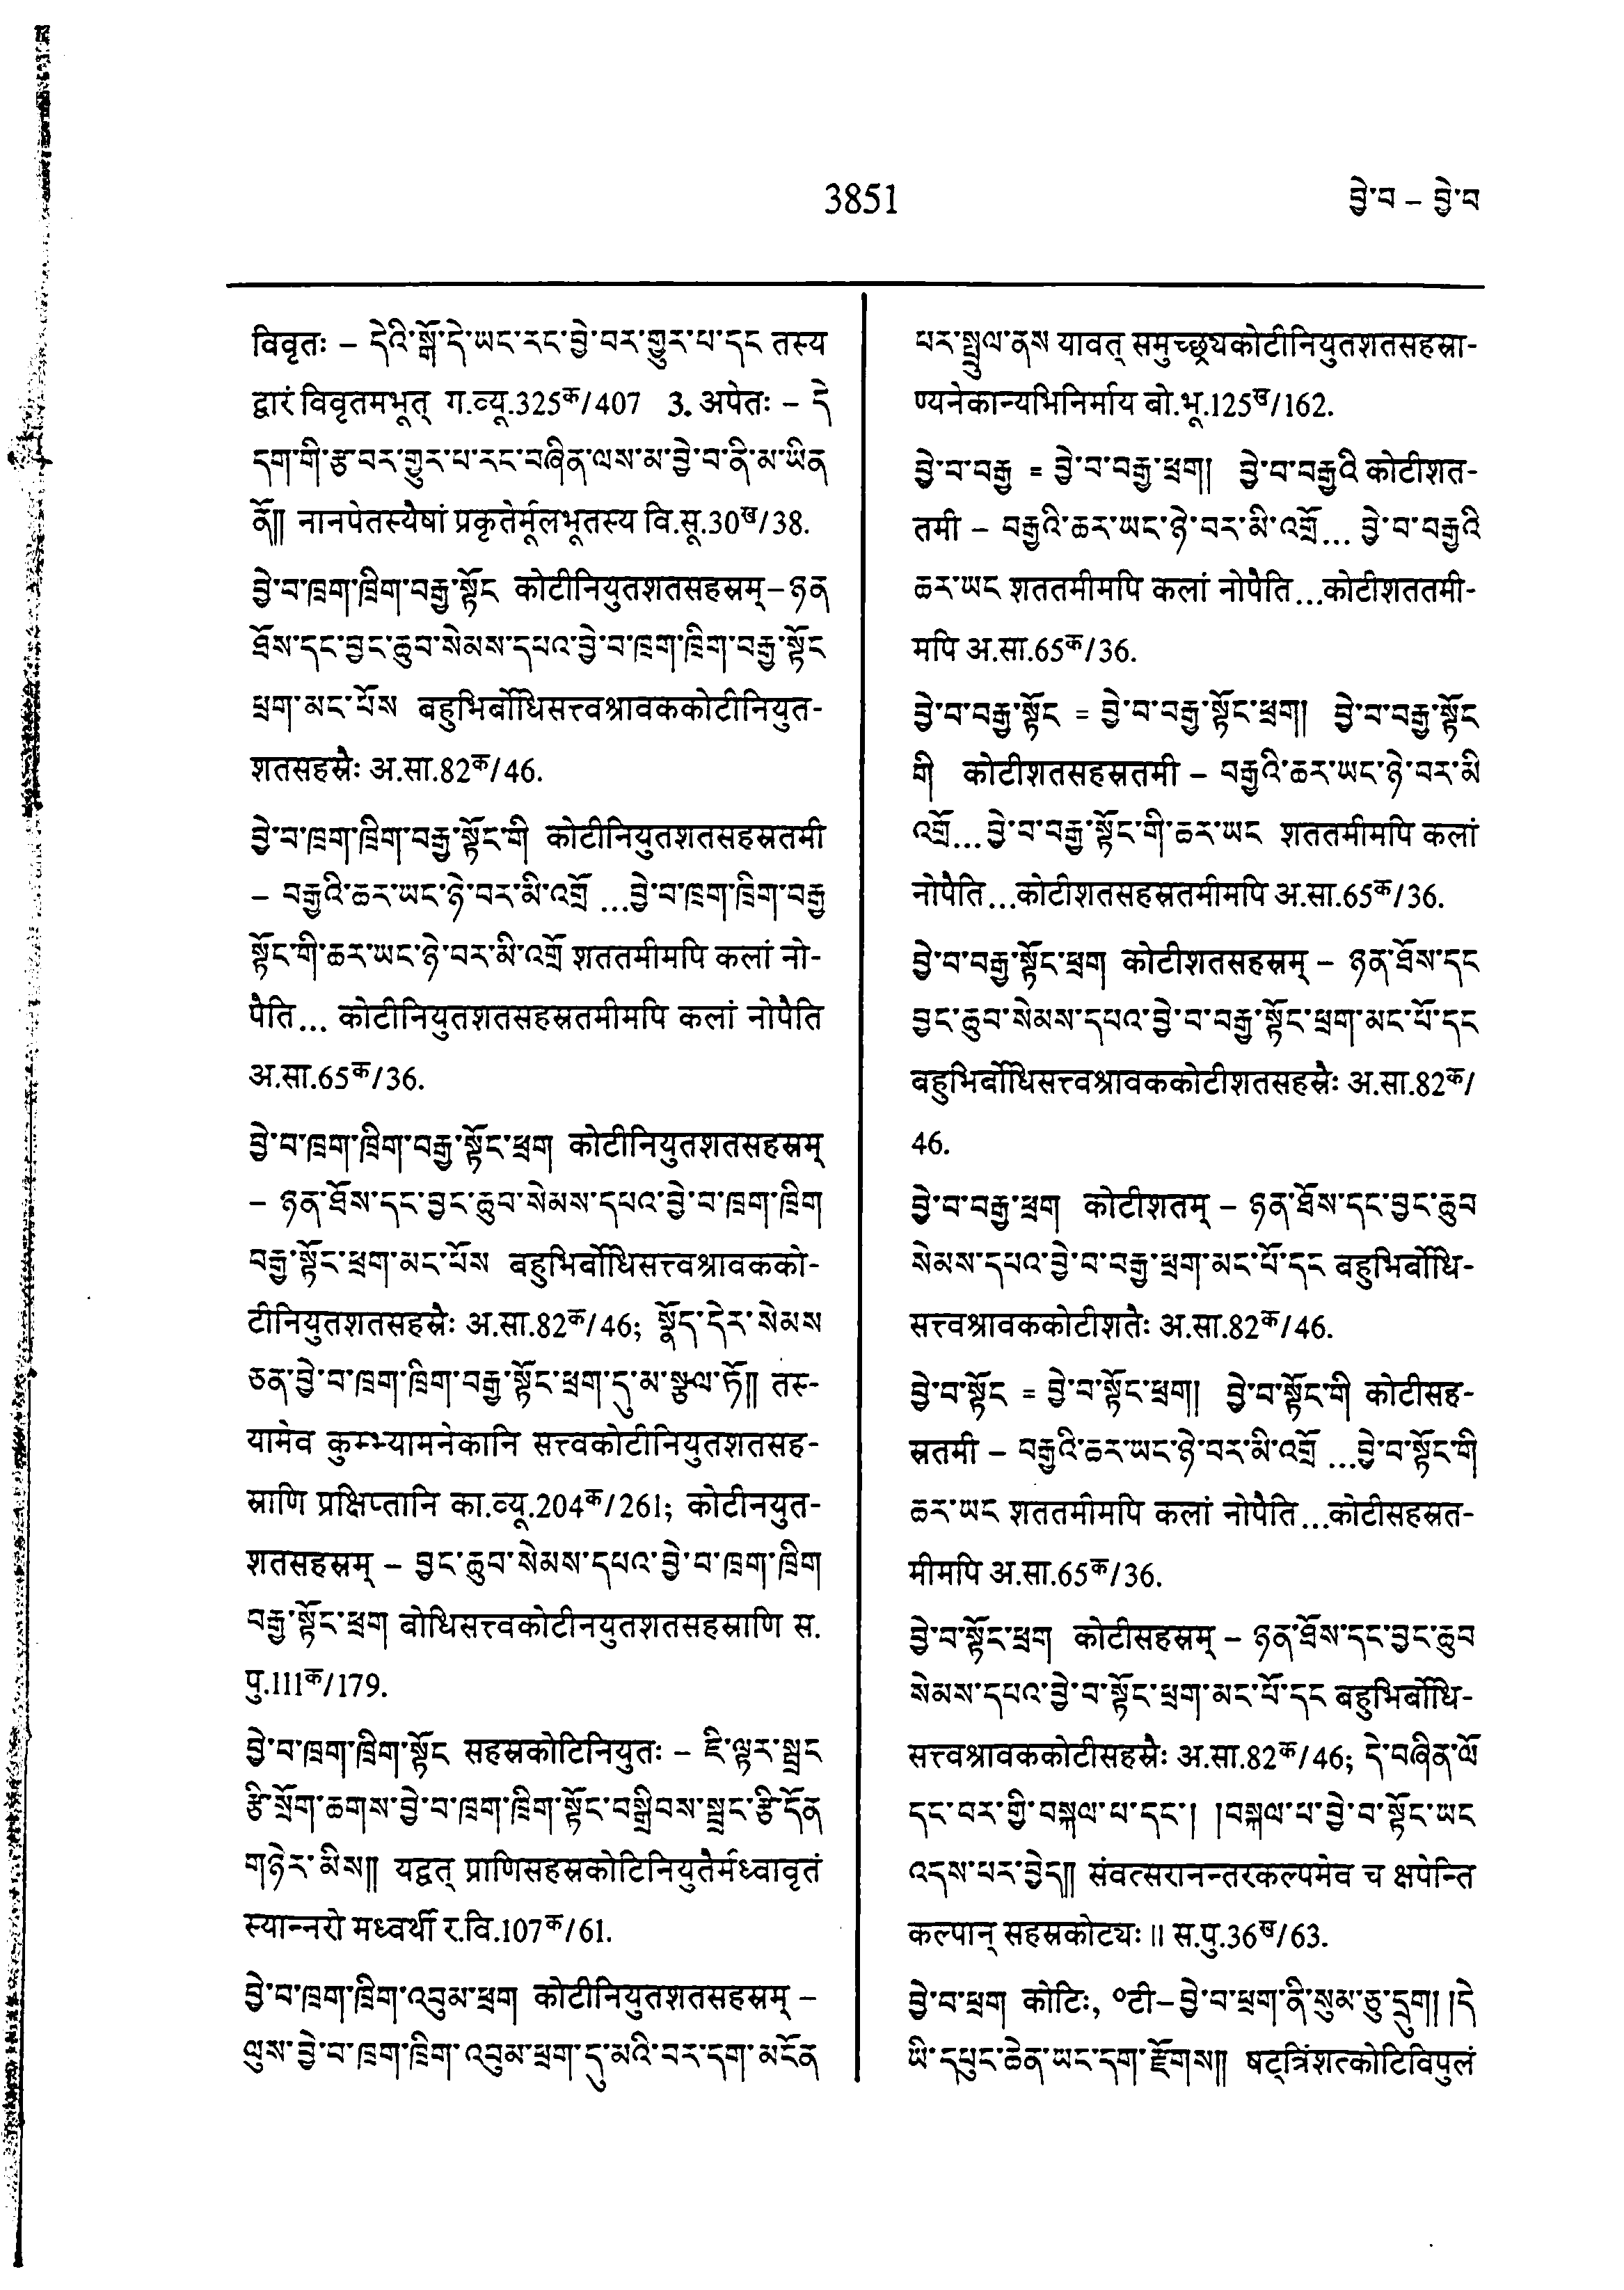 3851
བྱེ་བ – བྱེ་བ
विवृतः – དེའི་སྒོ་དེ་ཡང་རང་བྱེ་བར་གྱུར་པ་དང तस्य
द्वारं विवृतमभूत् ग.व्यू.325क/407 3. अपेतः – དེ
དག་གི་རྩ་བར་གྱུར་པ་རང་བཞིན་ལས་མ་བྱེ་བ་ནི་མ་ཡིན
ནོ།། नानपेतस्यैषां प्रकृतेर्मूलभूतस्य वि.सू.30ख/38.
བྱེ་བ་ཁྲག་ཁྲིག་བརྒྱ་སྟོང कोटीनियुतशतसहस्रम् – ཉན
ཐོས་དང་བྱང་ཆུབ་སེམས་དཔའ་བྱེ་བ་ཁྲག་ཁྲིག་བརྒྱ་སྟོང
ཕྲག་མང་པོས बहुभिर्बोधिसत्त्वश्रावककोटीनियुत-
शतसहस्रैः अ.सा.82क/46.
བྱེ་བ་ཁྲག་ཁྲིག་བརྒྱ་སྟོང་གི कोटीनियुतशतसहस्रतमी
– བརྒྱའི་ཆར་ཡང་ཉེ་བར་མི་འགྲོ ...བྱེ་བ་ཁྲག་ཁྲིག་བརྒྱ
སྟོང་གི་ཆར་ཡང་ཉེ་བར་མི་འགྲོ शततमीमपि कलां नो-
पैति... कोटीनियुतशतसहस्रतमीमपि कलां नोपैति
अ.सा.65क/36.
བྱེ་བ་ཁྲག་ཁྲིག་བརྒྱ་སྟོང་ཕྲག कोटीनियुतशतसहस्रम्
– ཉན་ཐོས་དང་བྱང་ཆུབ་སེམས་དཔའ་བྱེ་བ་ཁྲག་ཁྲིག
བརྒྱ་སྟོང་ཕྲག་མང་པོས बहुभिर्बोधिसत्त्वश्रावकको-
टीनियुतशतसहस्रैः अ.सा.82क/46; སྣོད་དེར་སེམས
ཅན་བྱེ་བ་ཁྲག་ཁྲིག་བརྒྱ་སྟོང་ཕྲག་དུ་མ་སྩལ་ཏོ།། तस-
यामेव कुम्भ्यामनेकानि सत्त्वकोटीनियुतशतसह-
स्राणि प्रक्षिप्तानि का.व्यू.204क/261; कोटीनयुत-
शतसहस्रम् – བྱང་ཆུབ་སེམས་དཔའ་བྱེ་བ་ཁྲག་ཁྲིག
བརྒྱ་སྟོང་ཕྲག बोधिसत्त्वकोटीनयुतशतसहस्राणि स.
पु.111क/179.
བྱེ་བ་ཁྲག་ཁྲིག་སྟོང सहस्रकोटिनियुतः – ཇི་ལྟར་སྦྲང
རྩི་སྲོག་ཆགས་བྱེ་བ་ཁྲག་ཁྲིག་སྟོང་བསྒྲིབས་སྦྲང་རྩི་དོན
གཉེར་མིས།། यद्वत् प्राणिसहस्रकोटिनियुतैर्मध्वावृतं
स्यान्नरो मध्वर्थी र.वि.107क/61.
བྱེ་བ་ཁྲག་ཁྲིག་འབུམ་ཕྲག कोटीनियुतशतसहस्रम् –
ལུས་བྱེ་བ་ཁྲག་ཁྲིག་འབུམ་ཕྲག་དུ་མའི་བར་དག་མངོན
པར་སྤྲུལ་ནས यावत् समुच्छ्रयकोटीनियुतशतसहस्रा-
ण्यनेकान्यभिनिर्माय बो.भू.125ख/162.
བྱེ་བ་བརྒྱ = བྱེ་བ་བརྒྱ་ཕྲག། བྱེ་བ་བརྒྱའི कोटीशत-
तमी – བརྒྱའི་ཆར་ཡང་ཉེ་བར་མི་འགྲོ... བྱེ་བ་བརྒྱའི
ཆར་ཡང शततमीमपि कलां नोपैति...कोटीशततमी-
मपि अ.सा.65क/36.
བྱེ་བ་བརྒྱ་སྟོང = བྱེ་བ་བརྒྱ་སྟོང་ཕྲག། བྱེ་བ་བརྒྱ་སྟོང
གི कोटीशतसहस्रतमी – བརྒྱའི་ཆར་ཡང་ཉེ་བར་མི
འགྲོ...བྱེ་བ་བརྒྱ་སྟོང་གི་ཆར་ཡང शततमीमपि कलां
नोपैति...कोटीशतसहस्रतमीमपि अ.सा.65क/36.
བྱེ་བ་བརྒྱ་སྟོང་ཕྲག कोटीशतसहस्रम् – ཉན་ཐོས་དང
བྱང་ཆུབ་སེམས་དཔའ་བྱེ་བ་བརྒྱ་སྟོང་ཕྲག་མང་པོ་དང
बहुभिर्बोधिसत्त्वश्रावककोटीशतसहस्रैः अ.सा.82क/
46.
བྱེ་བ་བརྒྱ་ཕྲག कोटीशतम् – ཉན་ཐོས་དང་བྱང་ཆུབ
སེམས་དཔའ་བྱེ་བ་བརྒྱ་ཕྲག་མང་པོ་དང बहुभिर्बोधि-
सत्त्वश्रावककोटीशतैः अ.सा.82क/46.
བྱེ་བ་སྟོང = བྱེ་བ་སྟོང་ཕྲག། བྱེ་བ་སྟོང་གི कोटीसह-
स्रतमी – བརྒྱའི་ཆར་ཡང་ཉེ་བར་མི་འགྲོ ...བྱེ་བ་སྟོང་གི
ཆར་ཡང शततमीमपि कलां नोपैति...कोटीसहस्रत-
मीमपि अ.सा.65क/36.
བྱེ་བ་སྟོང་ཕྲག कोटीसहस्रम् – ཉན་ཐོས་དང་བྱང་ཆུབ
སེམས་དཔའ་བྱེ་བ་སྟོང་ཕྲག་མང་པོ་དང बहुभिर्बोधि-
सत्त्वश्रावककोटीसहस्रैः अ.सा.82क/46; དེ་བཞིན་ལོ
དང་བར་གྱི་བསྐལ་པ་དང་། །བསྐལ་པ་བྱེ་བ་སྟོང་ཡང
འདས་པར་བྱེད།། संवत्सरानन्तरकल्पमेव च क्षपेन्ति
कल्पान् सहस्रकोट्यः॥ स.पु.36ख/63.
བྱེ་བ་ཕྲག कोटिः, ०टी – བྱེ་བ་ཕྲག་ནི་སུམ་ཅུ་དྲུག། །དེ
ཡི་དཔུང་ཆེན་ཡང་དག་རྫོགས།། षट्त्रिंशत्कोटिविपुलं